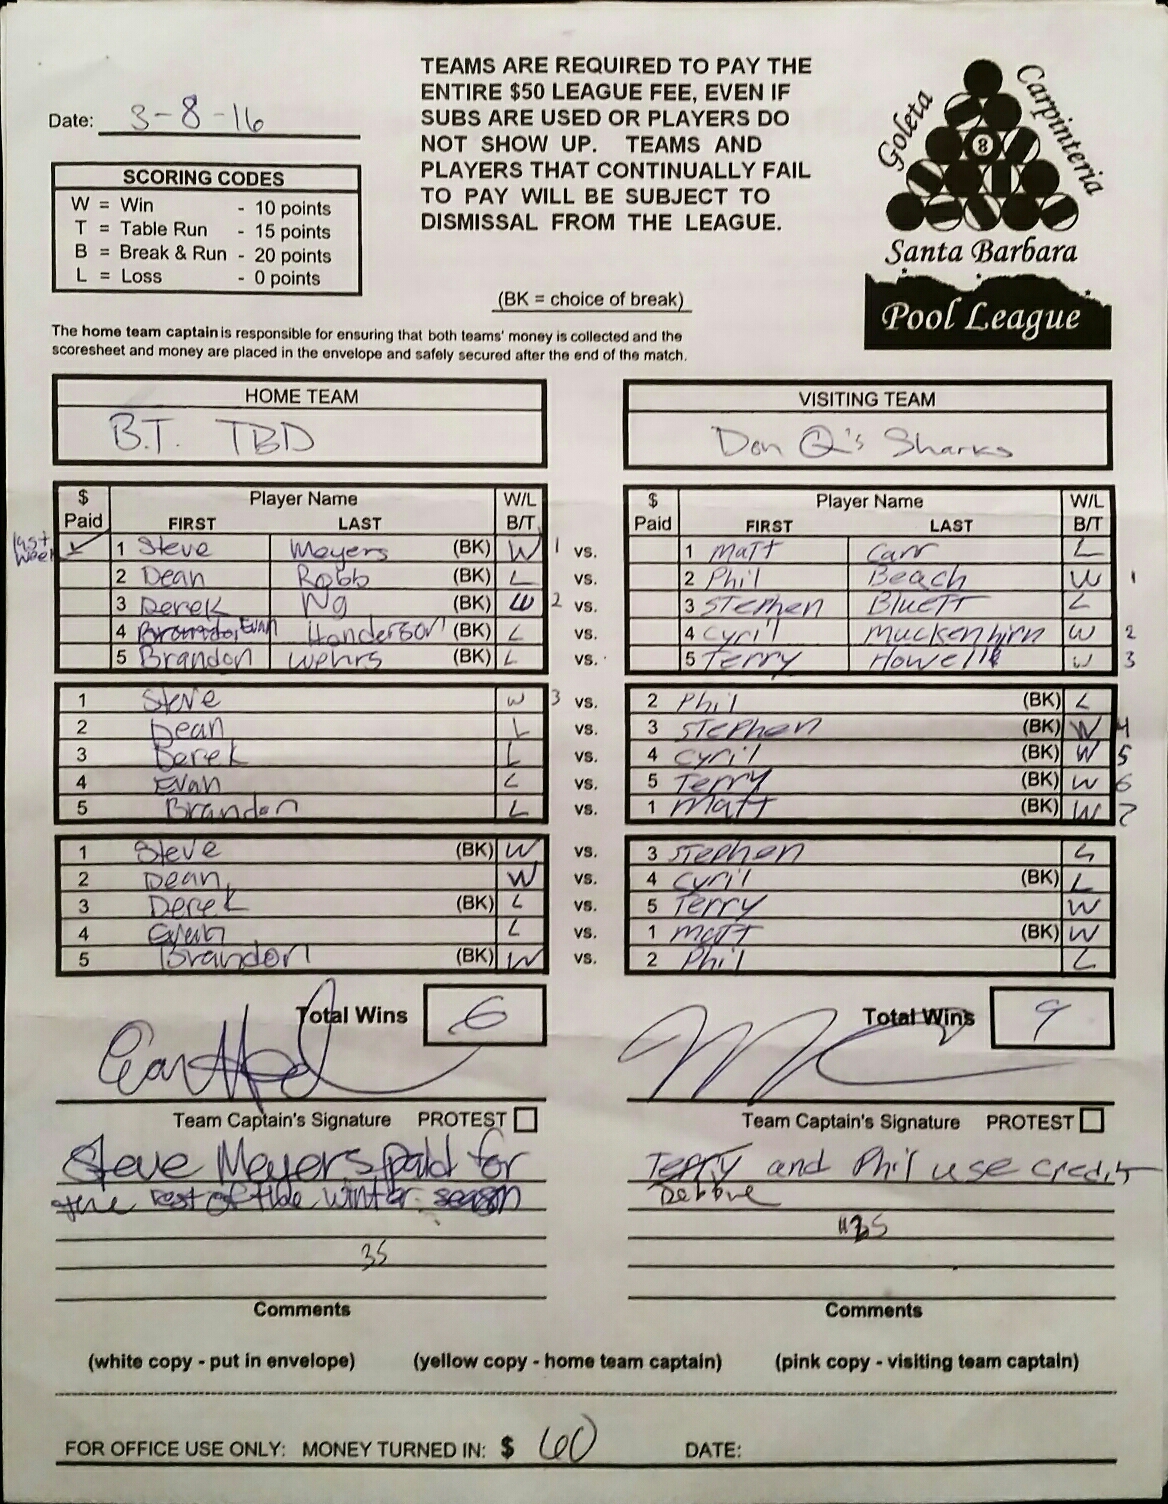 Date: 3-8-16
TEAMS ARE REQUIRED TO PAY THE
ENTIRE $50 LEAGUE FEE, EVEN IF
SUBS ARE USED OR PLAYERS DO
NOT SHOW UP. TEAMS AND
PLAYERS THAT CONTINUALLY FAIL
TO PAY WILL BE SUBJECT TO
DISMISSAL FROM THE LEAGUE.
Goleta
Carpinteria
8
Santa Barbara
Pool League
SCORING CODES
W = Win - 10 points
T = Table Run - 15 points
B = Break & Run - 20 points
L = Loss - 0 points
(BK = choice of break)
The home team captain is responsible for ensuring that both teams' money is collected and the
scoresheet and money are placed in the envelope and safely secured after the end of the match.
HOME TEAM
B.T. TBD
VISITING TEAM
Don Q's Sharks
$ Paid Player Name FIRST LAST W/L B/T
$ Paid Player Name FIRST LAST W/L B/T
last week
1 Steve Meyers (BK) W 1 vs. 1 Matt Carr L
2 Dean Robb (BK) L vs. 2 Phil Beach W 1
3 Derek Ng (BK) W 2 vs. 3 Stephen Bluett L
4 Evan Henderson (BK) L vs. 4 Cyril Muckenhirn W 2
5 Brandon Wehrs (BK) L vs. 5 Terry Howell W 3
1 Steve W 3 vs. 2 Phil (BK) L
2 Dean L vs. 3 Stephen (BK) W 4
3 Derek L vs. 4 Cyril (BK) W 5
4 Evan L vs. 5 Terry (BK) W 6
5 Brandon L vs. 1 Matt (BK) W 7
1 Steve (BK) W vs. 3 Stephen L
2 Dean W vs. 4 Cyril (BK) L
3 Derek (BK) L vs. 5 Terry W
4 Evan L vs. 1 Matt (BK) W
5 Brandon (BK) W vs. 2 Phil L
Total Wins 6
Total Wins 9
Team Captain's Signature PROTEST
Team Captain's Signature PROTEST
Steve Meyers paid for
the rest of the winter season
35
Comments
Terry and Phil use credit
Debbie
35
Comments
(white copy - put in envelope) (yellow copy - home team captain) (pink copy - visiting team captain)
FOR OFFICE USE ONLY: MONEY TURNED IN: $ 60 DATE: